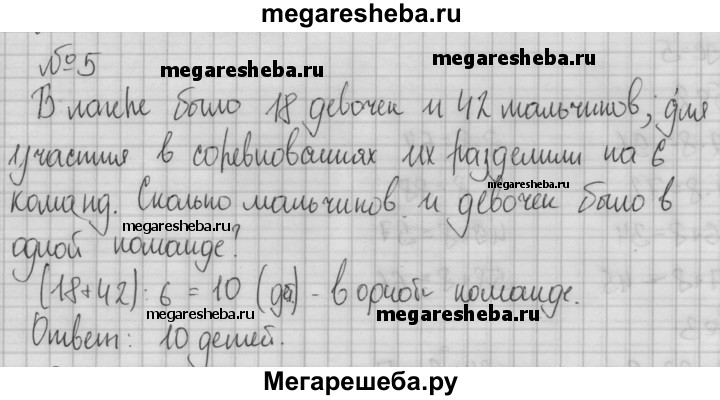 megaresheba.ru
№5
megaresheba.ru
megaresheba.ru
В лагере было 18 девочек и 42 мальчиков, для
участия в соревнованиях их разделили на 6
megaresheba.ru
команд. Сколько мальчиков и девочек было в
megaresheba.ru
одной команде?
(18+42) : 6 = 10 (д) - в одной команде.
megaresheba.ru
megaresheba.ru
Ответ: 10 детей.
Мегарешеба.ру